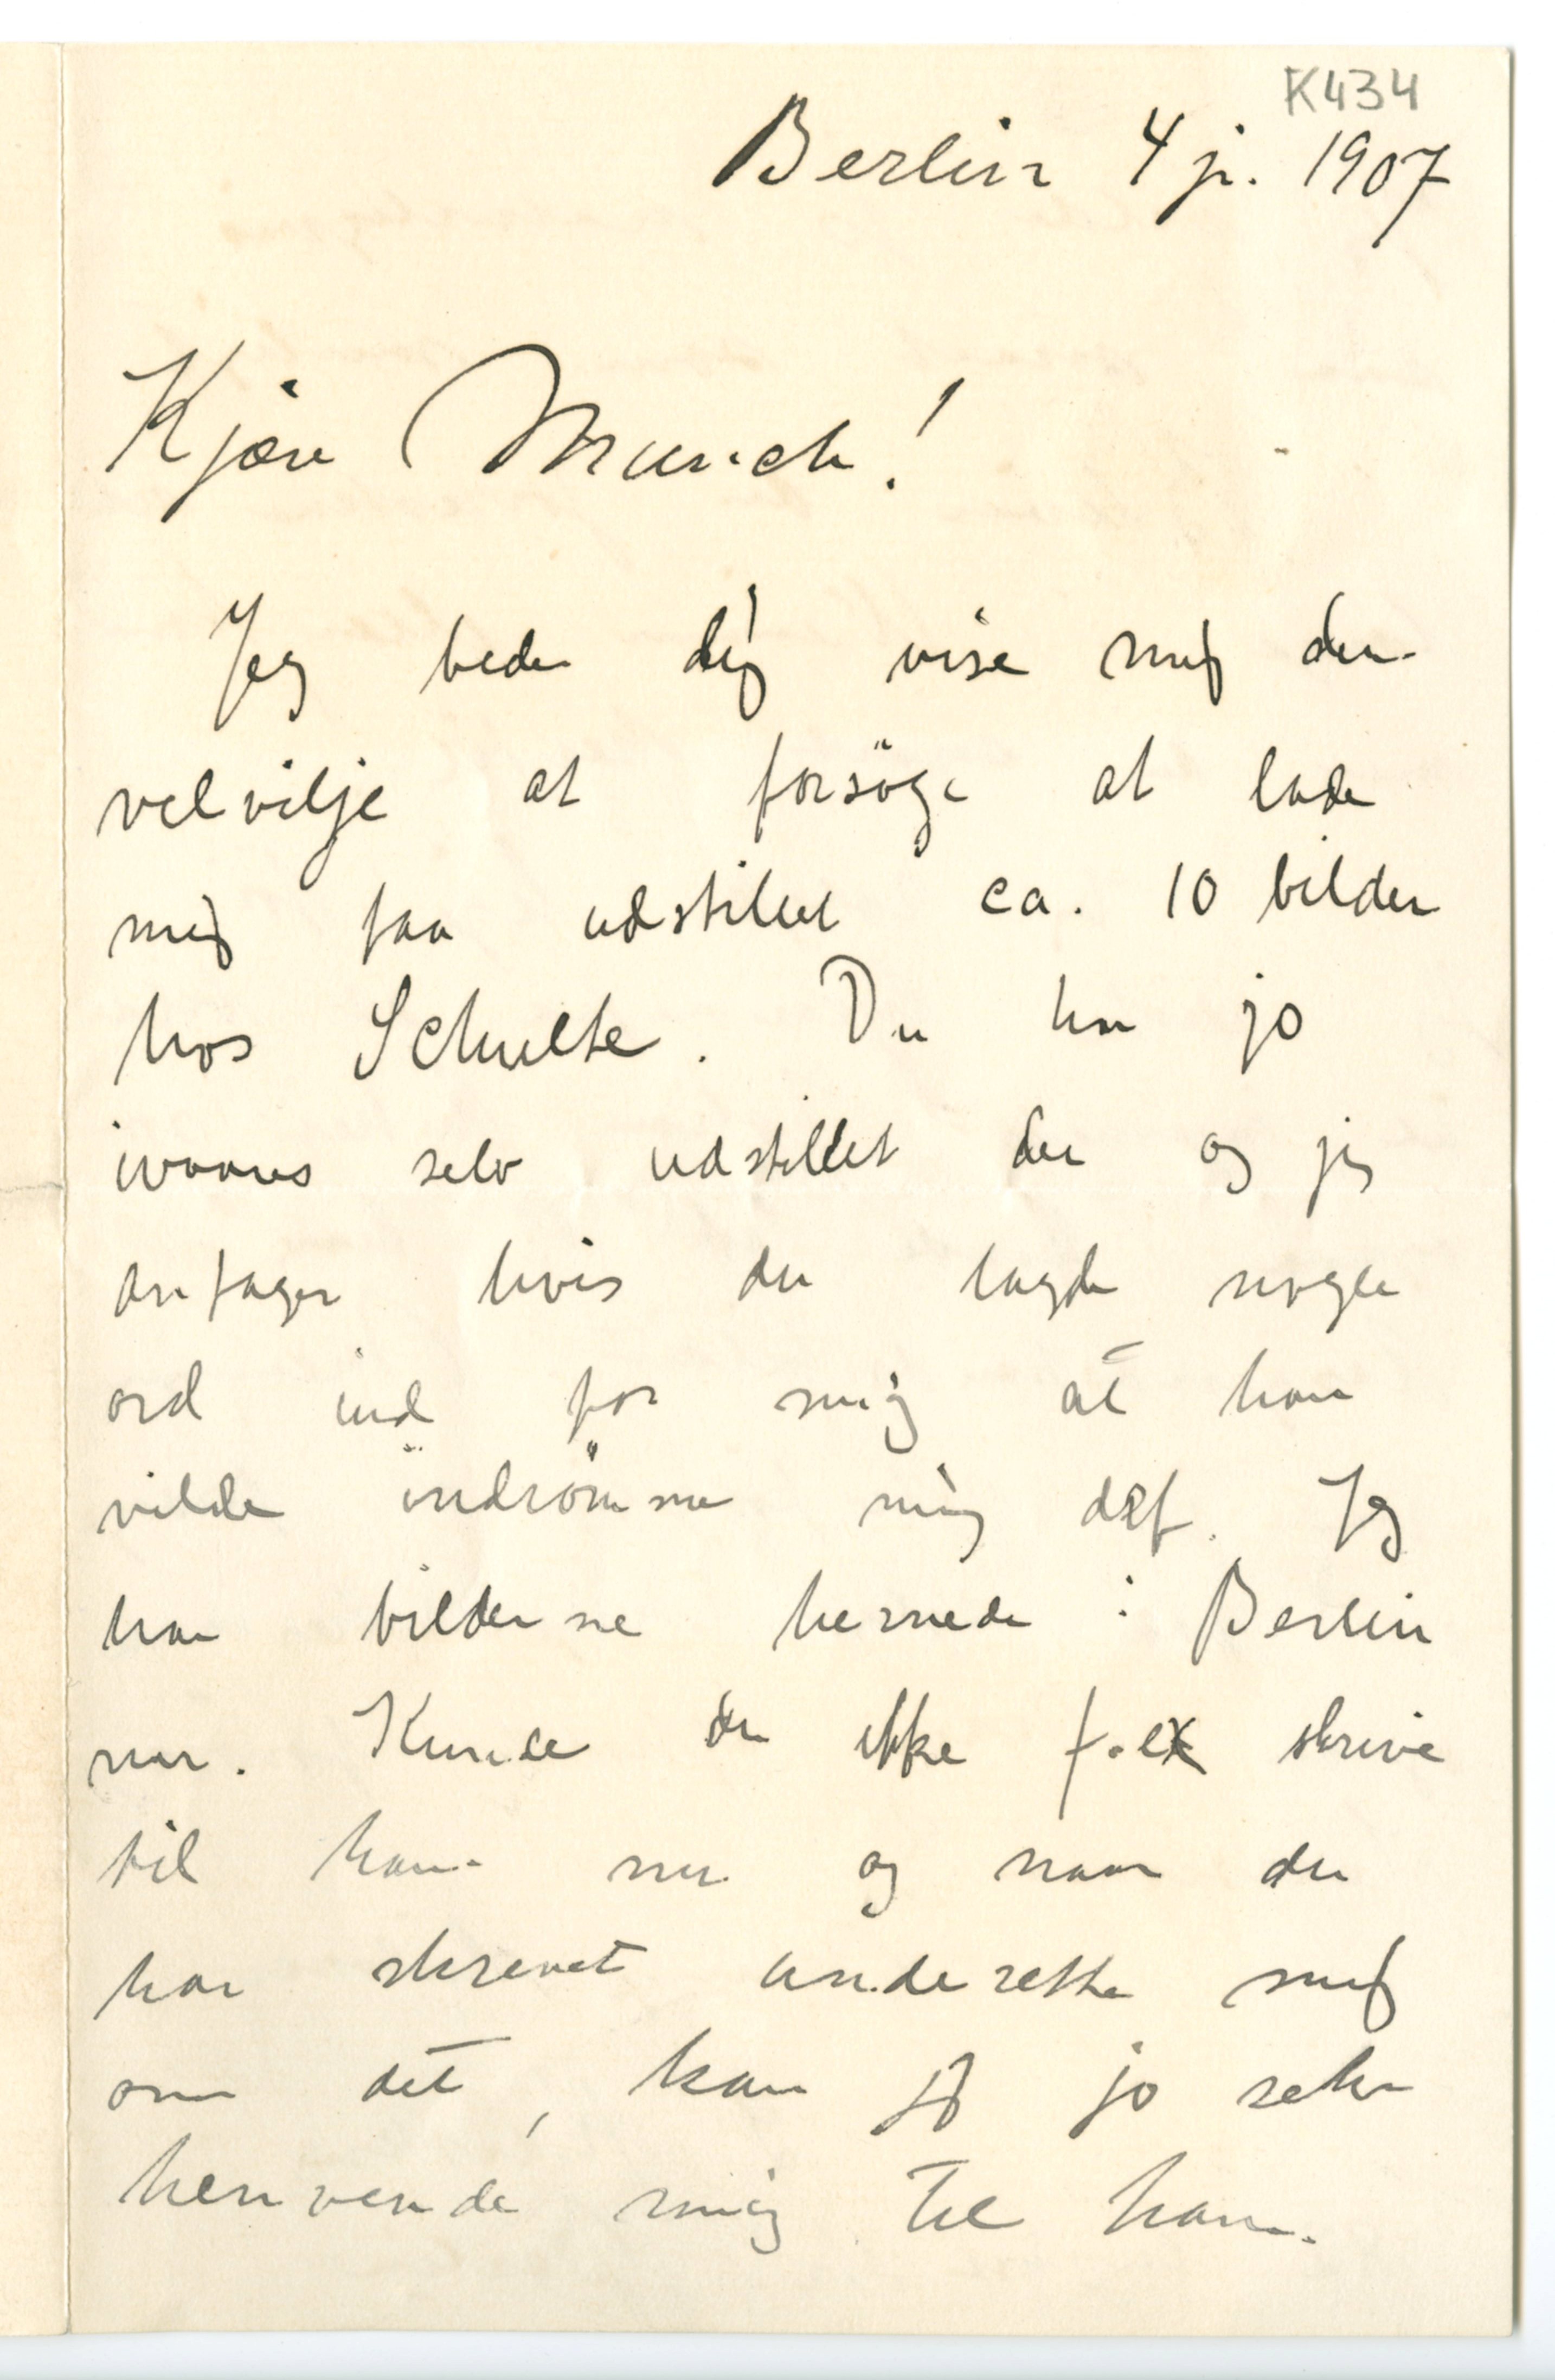 K434
Berlin 4 j. 1907
Kjære Munch!
Jeg beder dig vise mig den
velvilje at forsöge at lade
mig faa udstillet ca. 10 bilder
hos Schulte. Du har jo
ivaares selv udstillet der og jeg
antager hvis du lagde nogle
ord ind for mig at han
vilde indrömme mig det. Jeg
har bilderne hernede i Berlin
nu. Kunde du ikke f. ex skrive
til ham nu og naar du
har skrevet underrette mig
om det, kan jeg jo selv
henvende mig til ham.